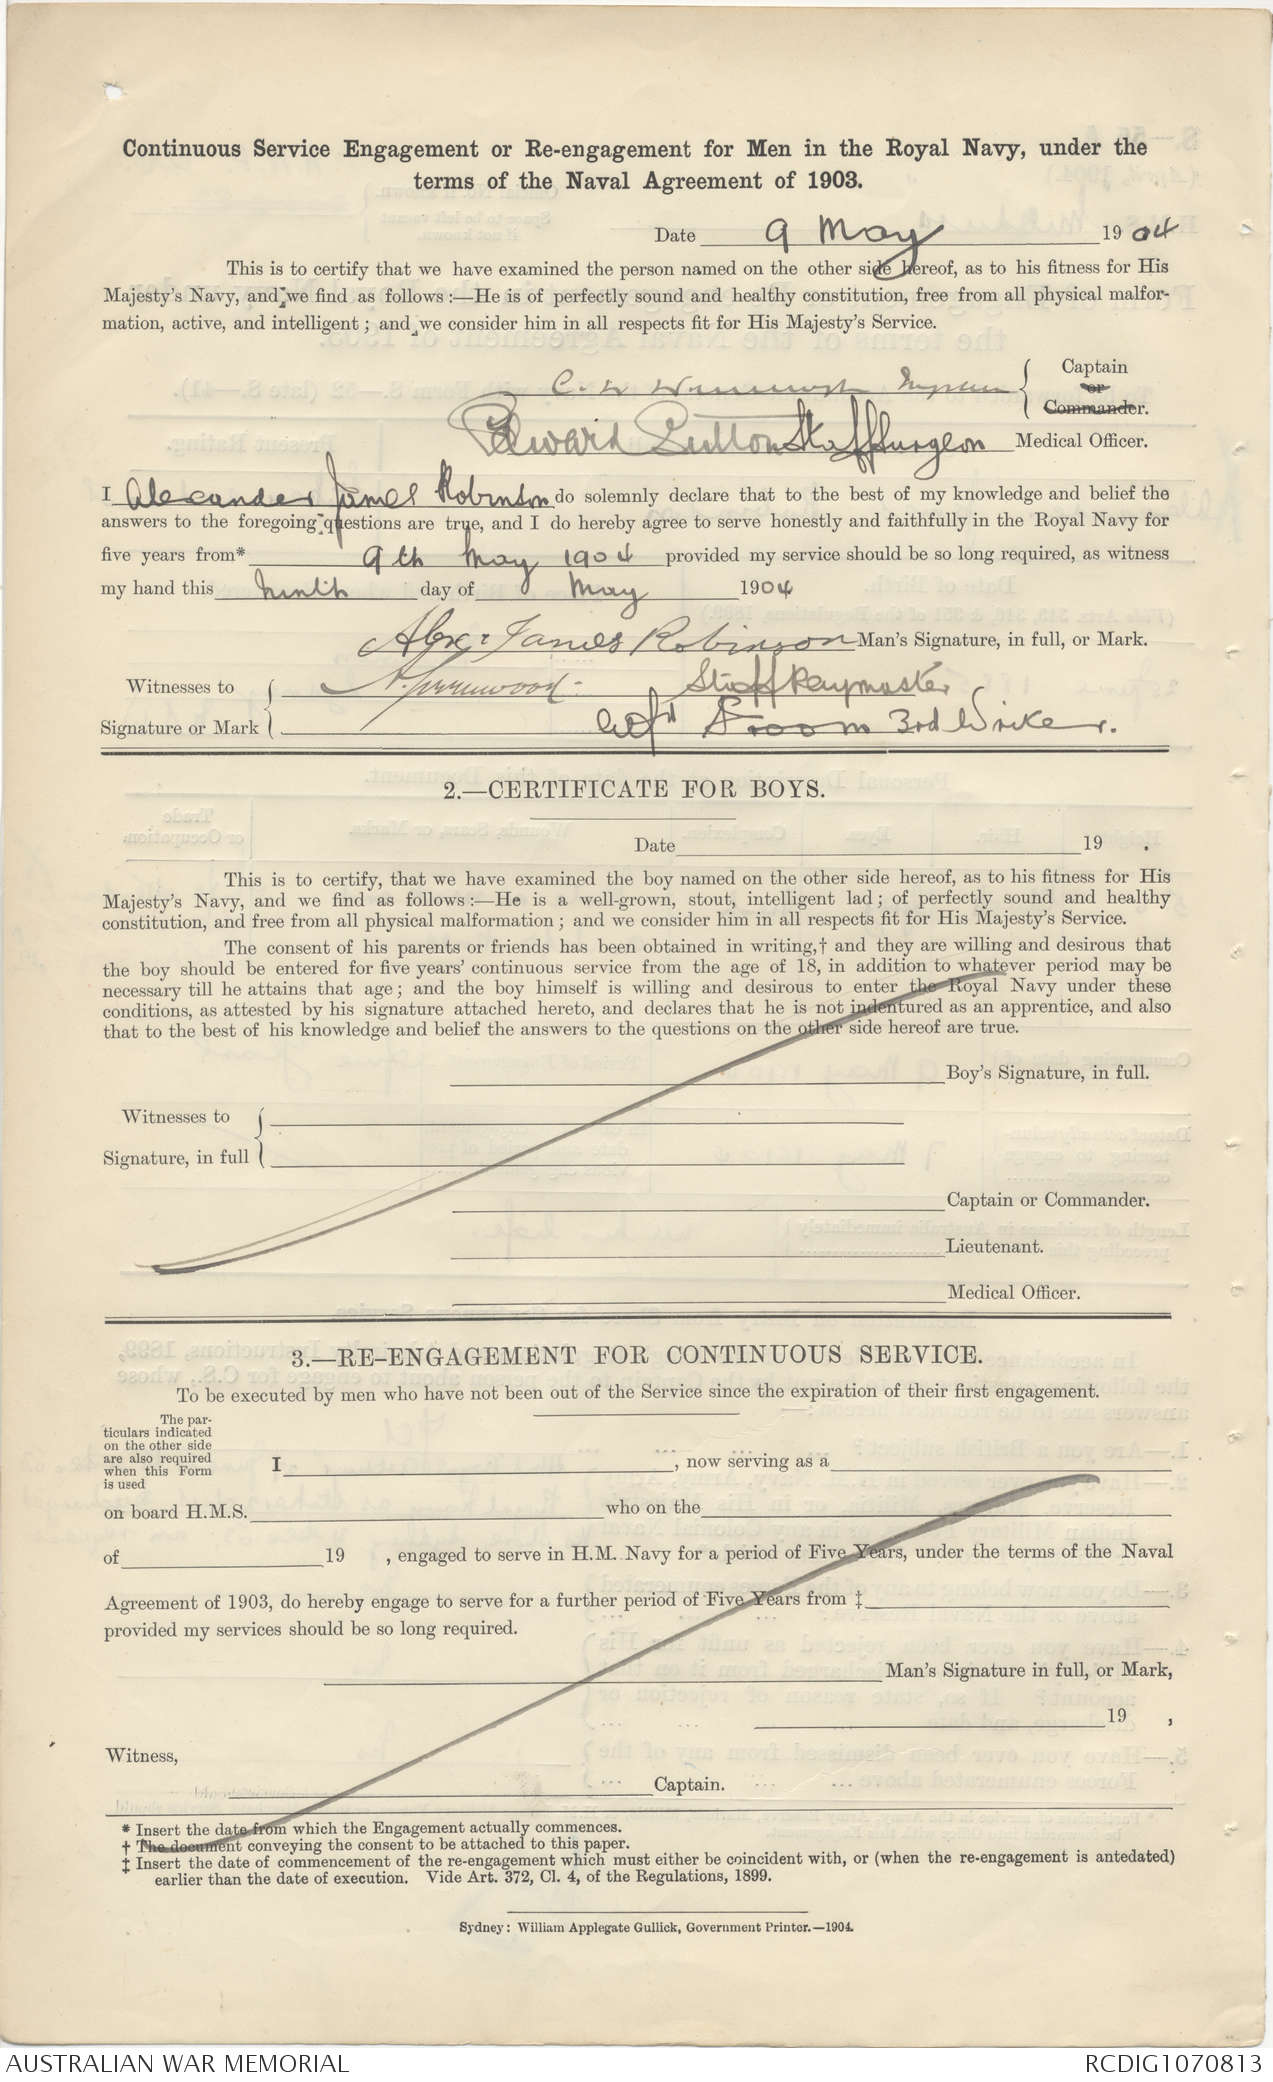 Continuous Service Engagement or Re-engagement for Men in the Royal Navy, under the
terms of the Naval Agreement of 1903.
Date 9 May 1904
This is to certify that we have examined the person named on the other side hereof, as to his fitness for His
Majesty's Navy, and we find as follows :—He is of perfectly sound and healthy constitution, free from all physical malfor-
mation, active, and intelligent ; and we consider him in all respects fit for His Majesty's Service.
Captain
or
Commander.
Edward Sutton Staff Surgeon Medical Officer.
I Alexander James Robinson do solemnly declare that to the best of my knowledge and belief the
answers to the foregoing questions are true, and I do hereby agree to serve honestly and faithfully in the Royal Navy for
five years from* 9th May 1904 provided my service should be so long required, as witness
my hand this Ninth day of May 1904
Alexr James Robinson Man's Signature, in full, or Mark.
Witnesses to Staff Paymaster
Signature or Mark 3rd Writer.
2.—CERTIFICATE FOR BOYS.
Date 19 .
This is to certify, that we have examined the boy named on the other side hereof, as to his fitness for His
Majesty's Navy, and we find as follows :—He is a well-grown, stout, intelligent lad ; of perfectly sound and healthy
constitution, and free from all physical malformation ; and we consider him in all respects fit for His Majesty's Service.
The consent of his parents or friends has been obtained in writing,† and they are willing and desirous that
the boy should be entered for five years' continuous service from the age of 18, in addition to whatever period may be
necessary till he attains that age ; and the boy himself is willing and desirous to enter the Royal Navy under these
conditions, as attested by his signature attached hereto, and declares that he is not indentured as an apprentice, and also
that to the best of his knowledge and belief the answers to the questions on the other side hereof are true.
Boy's Signature, in full.
Witnesses to
Signature, in full
Captain or Commander.
Lieutenant.
Medical Officer.
3.—RE-ENGAGEMENT FOR CONTINUOUS SERVICE.
To be executed by men who have not been out of the Service since the expiration of their first engagement.
The par-
ticulars indicated
on the other side
are also required
when this Form
is used
I , now serving as a
on board H.M.S. who on the
of 19 , engaged to serve in H.M. Navy for a period of Five Years, under the terms of the Naval
Agreement of 1903, do hereby engage to serve for a further period of Five Years from ‡
provided my services should be so long required.
Man's Signature in full, or Mark,
19 ,
Witness,
Captain.
* Insert the date from which the Engagement actually commences.
† The document conveying the consent to be attached to this paper.
‡ Insert the date of commencement of the re-engagement which must either be coincident with, or (when the re-engagement is antedated)
earlier than the date of execution. Vide Art. 372, Cl. 4, of the Regulations, 1899.
Sydney : William Applegate Gullick, Government Printer.—1904.
AUSTRALIAN WAR MEMORIAL
RCDIG1070813